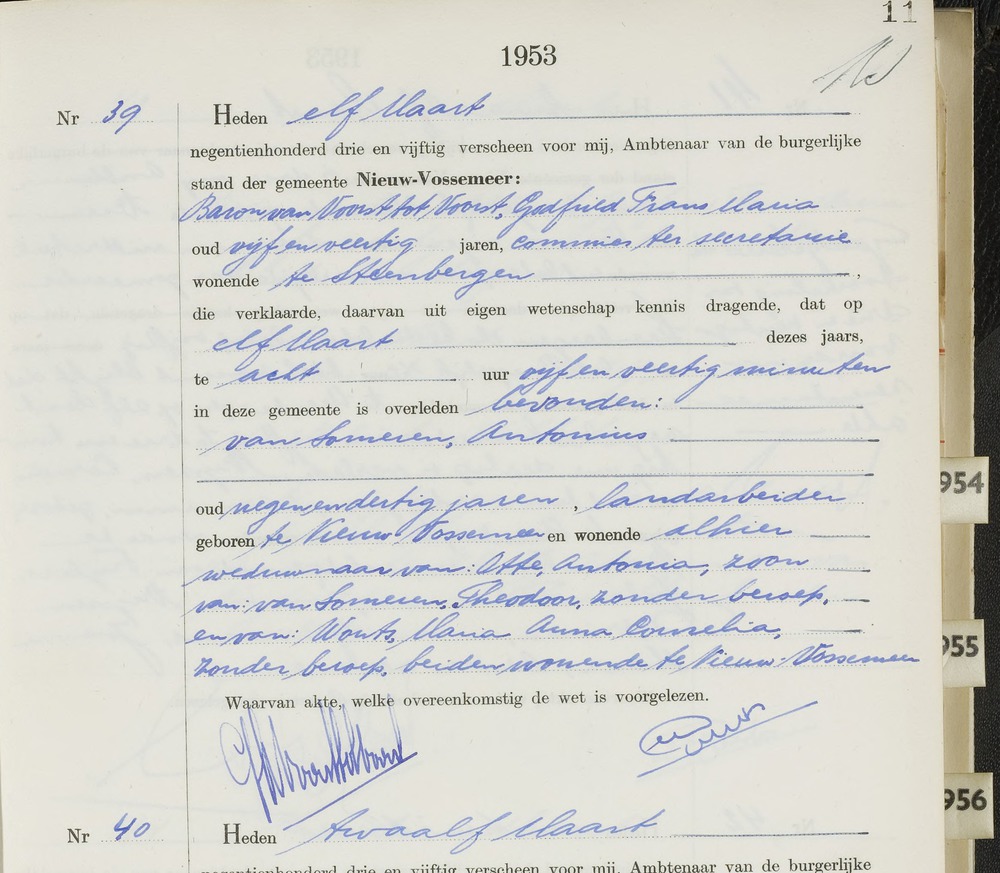 11
1953
Nr 39 Heden elf Maart
negentienhonderd drie en vijftig verscheen voor mij, Ambtenaar van de burgerlijke
stand der gemeente Nieuw-Vossemeer:
Baron van Voorst tot Voorst, Godfried Frans Maria
oud vijf en veertig jaren, commies ter secretarie
wonende te Steenbergen ,
die verklaarde, daarvan uit eigen wetenschap kennis dragende, dat op
elf Maart dezes jaars,
te acht uur vijf en veertig minuten
in deze gemeente is overleden bevonden:
van Someren, Antonius
oud negenendertig jaren , landarbeider
geboren te Nieuw-Vossemeer en wonende alhier
weduwnaar van: Otte, Antonia, zoon
van: van Someren, Theodoor, zonder beroep,
en van: Wouts, Maria Anna Cornelia,
zonder beroep, beiden wonende te Nieuw-Vossemeer
Waarvan akte, welke overeenkomstig de wet is voorgelezen.
Nr 40 Heden twaalf Maart
negentienhonderd drie en vijftig verscheen voor mij, Ambtenaar van de burgerlijke
954
955
956